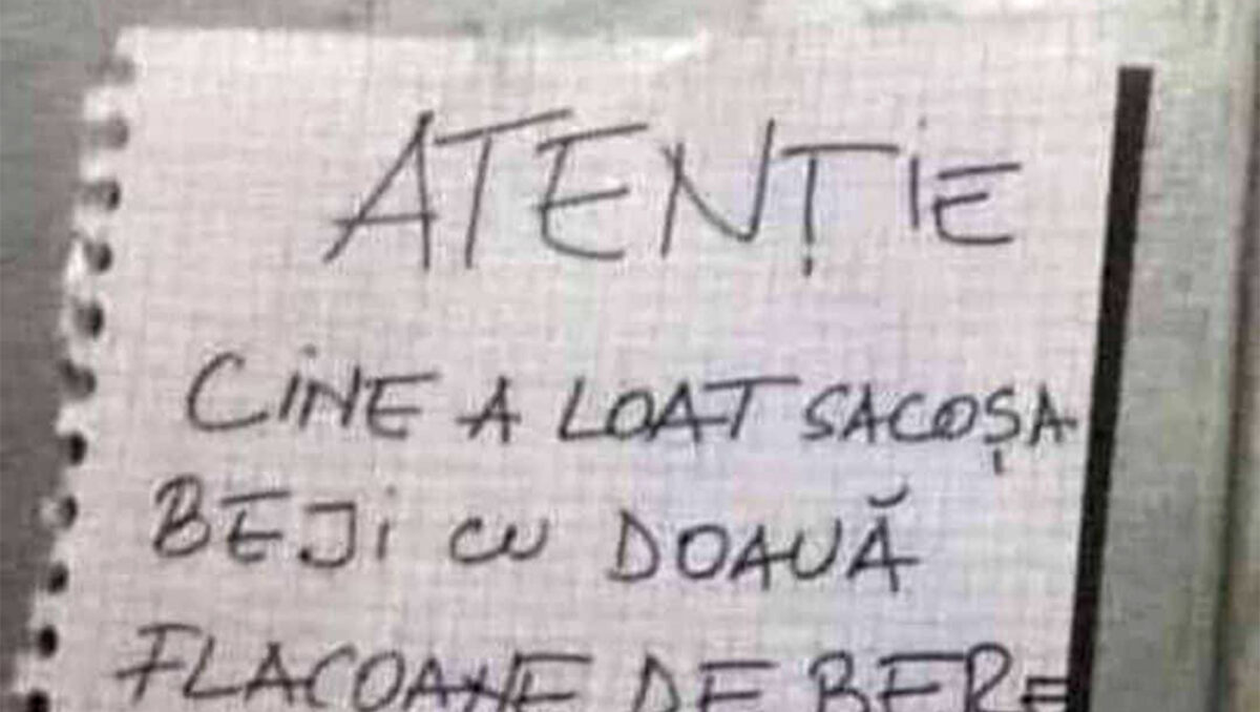 ATENȚiE
CiNE A LOAT SACOȘA
BEJi CU DOAUĂ
FLACOANE DE BERE